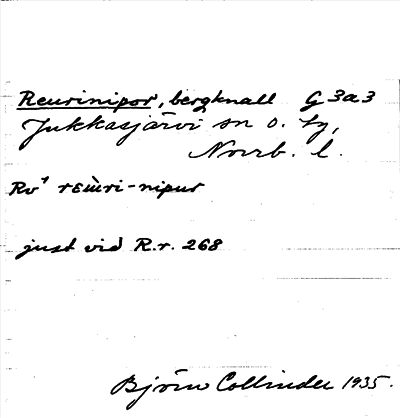 Reurinipor, bergknall G 3a3
Jukkasjärvi sn o. tg,
Norrb. l.
Rv⁴ rɛùri-nipur
just vid R.r. 268
Björn Collinder 1935.